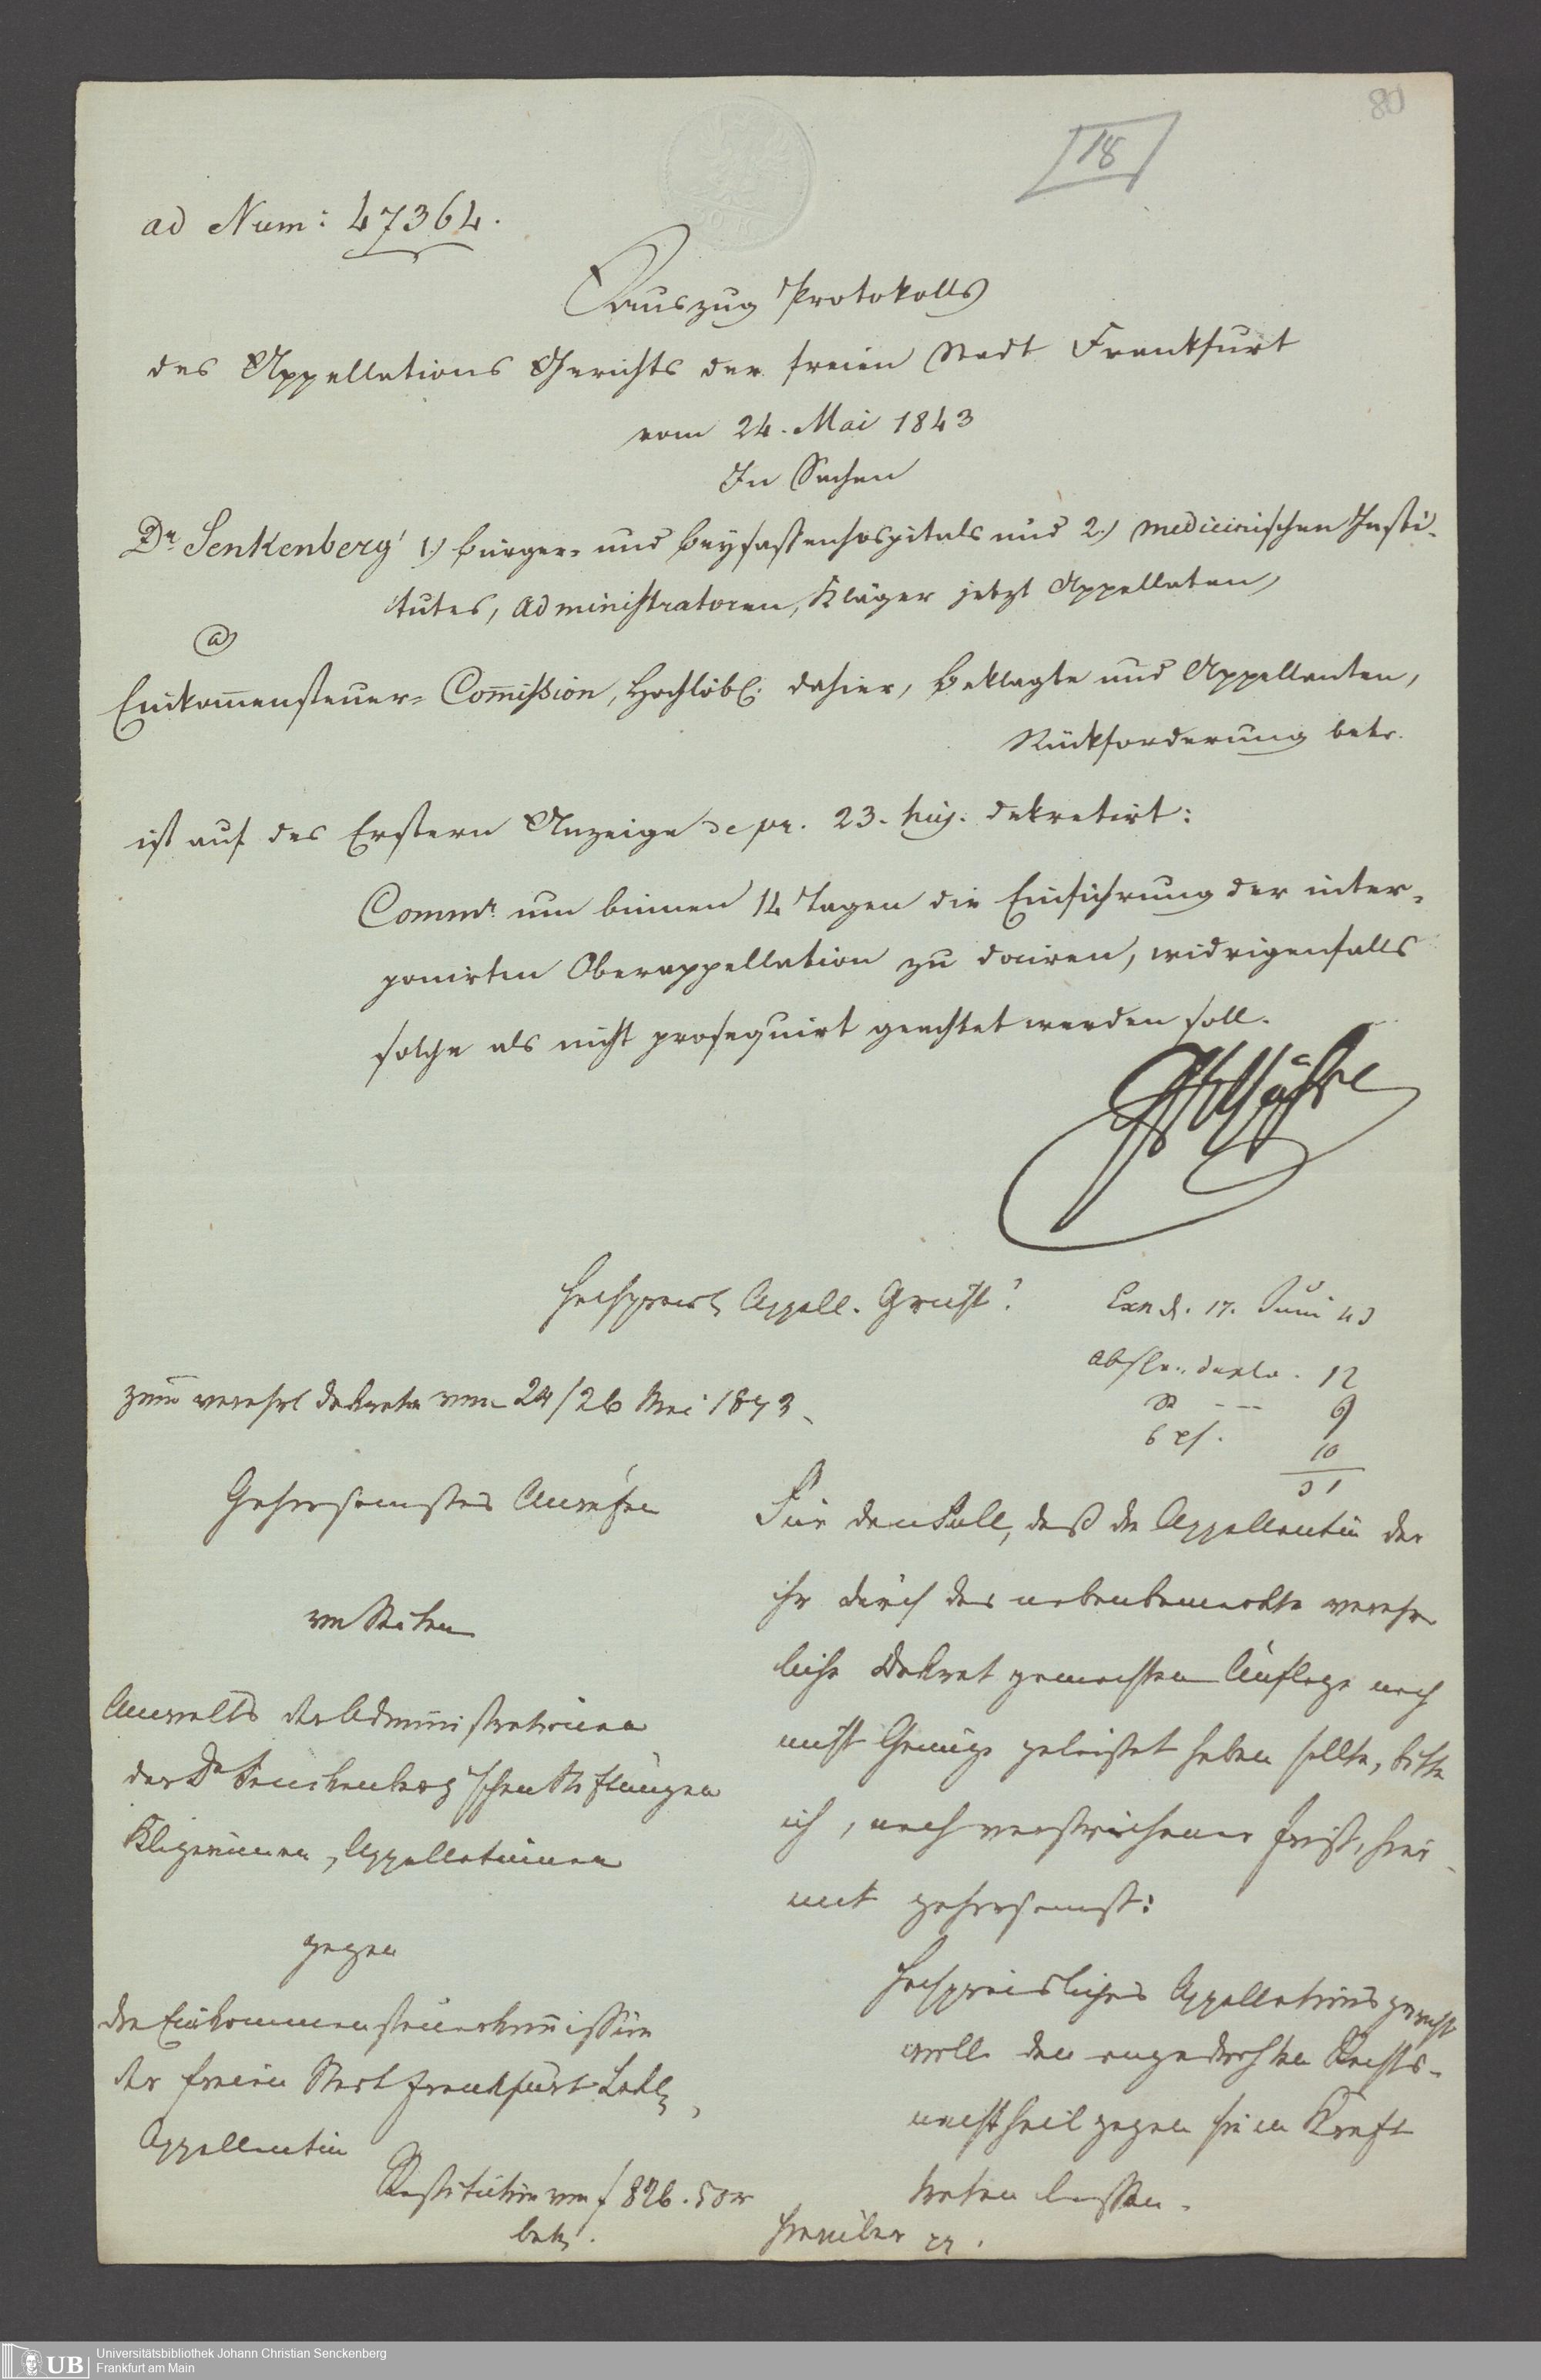 80
18
ad Num: 47364.
Auszug Protokolls
des Appellations Gerichts der freien Stadt Frankfurt
vom 24. Mai 1843
In Sachen
Dr Senkenberg' 1.) Bürger- und Beysassenhospitals und 2.) medicinischen Insti-
tutes, Administratoren, Kläger jetzt Appellaten,
a
Einkom̅ensteuer- Com̅ission, Hochlöbl. dahier, Beklagte und Appellanten,
Rückforderung betr.
ist auf des Erstern Anzeige de pr. 23. huj. dekretirt:
Commr. um binnen 14 Tagen die Einführung der inter-
ponirten Oberappellation zu dociren, widrigenfalls
solche als nicht prosequirt geachtet werden soll.
Hochpreisl. Appell. Gericht!
17. Juni 43
12
9
6 xf.
10
31
zum verehrl Dekrete vom 24/26 Mai 1843
Gehorsamstes Anrufen
von Seiten
Anwalts der Administrationen
der Dr Senckenberg'schen Stiftungen
Klägerinnen, Appellatinnen
gegen
die Einkommensteuerkom̅ission
der freien Stadt Frankfurt Löbl,
Appellantin
Restitution von f 826. 50 xr
betr.
Für den Fall, daß die Appellantin der
ihr durch das nebenbemerkte verehr
liche Dekret gemachten Auflage noch
nicht Genüge geleistet haben sollte, bitte
ich, nach verstrichener Frist, hier-
mit gehorsamst:
Hochpreisliches Appellationsgericht
wolle den angedrohten Rechts-
nachtheil gegen sie in Kraft
treten lassen.
Hierüber rc.
Universitätsbibliothek Johann Christian Senckenberg
Frankfurt am Main
UB